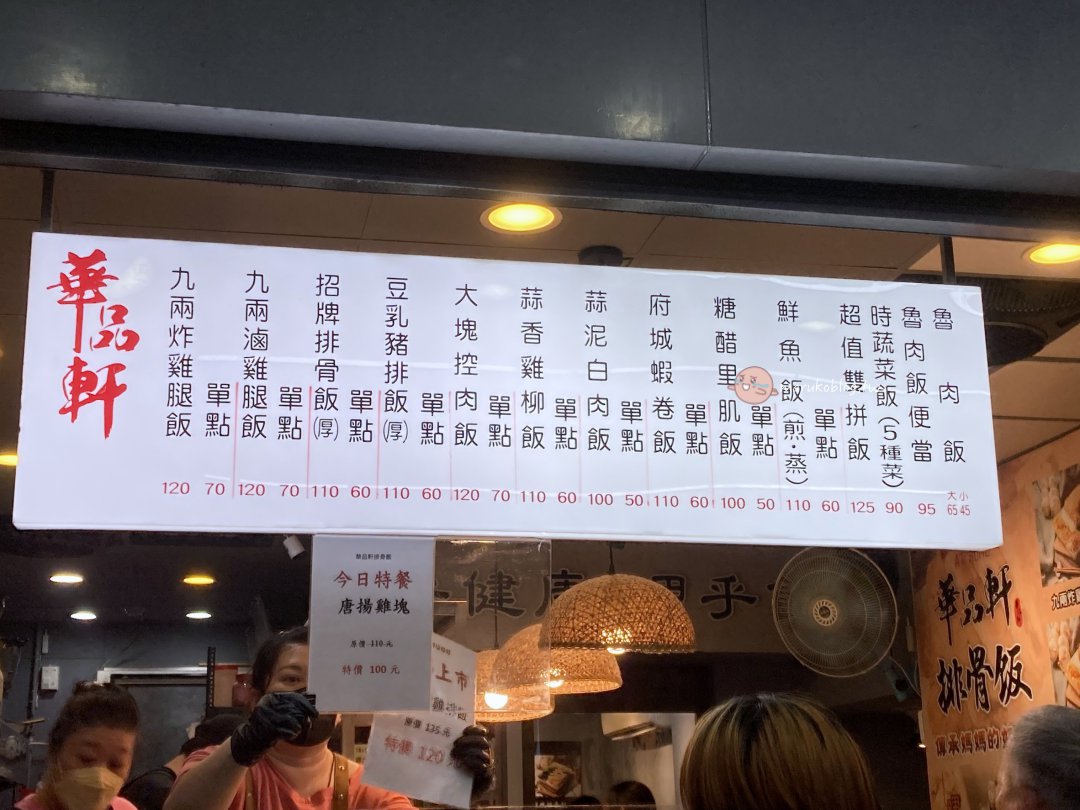 華品軒
九兩炸雞腿飯 120
單點 70
九兩滷雞腿飯 120
單點 70
招牌排骨飯(厚) 110
單點 60
豆乳豬排飯(厚) 110
單點 60
大塊控肉飯 120
單點 70
蒜香雞柳飯 110
單點 60
蒜泥白肉飯 100
單點 50
府城蝦卷飯 110
單點 60
糖醋里肌飯 100
單點 50
鮮魚飯(煎·蒸) 110
單點 60
超值雙拼飯 125
時蔬菜飯(5種菜) 90
魯肉飯便當 95
魯肉飯 大65 小45
華品軒排骨飯
今日特餐
唐揚雞塊
原價 110 元
特價 100 元
上市
原價 135元
特價 120
健康
乎
華品軒
排骨飯
傳承媽媽的
九兩炸